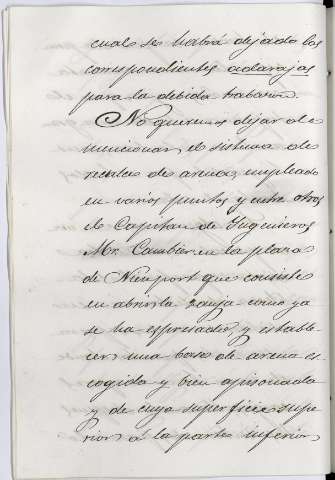 cuales se habrá dejado las
correspondientes adarajas
para la debida trabazon.
No queremos dejar de
mencionar el sistema de
recalces de arena, empleado
en varios puntos y entre otros
el Capitan de Ingenieros
Mr. Cambier en la plaza
de Nieuport que consiste
en abrir la zanja como ya
se ha espresado, y estable-
cer una base de arena es-
cogida y bien apisonada
y de cuya superficie supe-
rior á la parte inferior